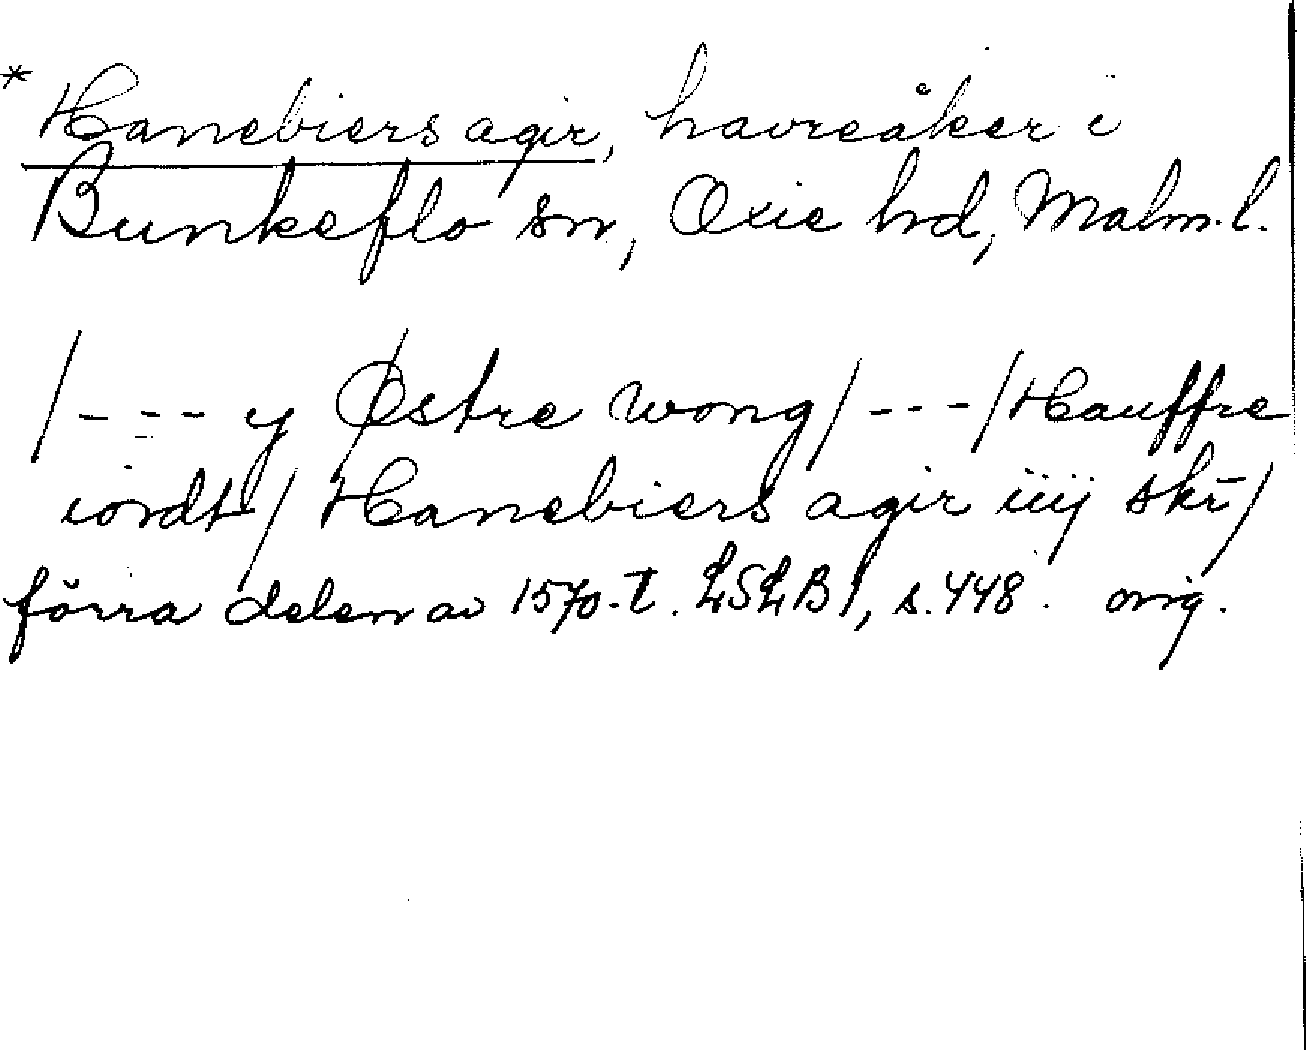 * Hanebiers agir, havreåker i
Bunkeflo sn, Oxie hrd, Malm. l.
/--- y Østre wong/---/Hauffre
iordt/ Hanebiers agir iiij skr̄/
förra delen av 1570-t. LSLB I, s. 448. orig.